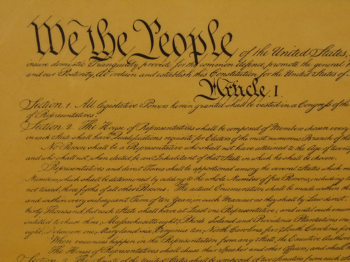 We the People of the United States,
insure domestic Tranquility, provide for the common defence, promote the general
and our Posterity, do ordain and establish this Constitution for the United States of
Article. I.
Section. 1. All legislative Powers herein granted shall be vested in a Congress of the
of Representatives.
Section. 2. The House of Representatives shall be composed of Members chosen every
in each State shall have Qualifications requisite for Electors of the most numerous Branch of the
No Person shall be a Representative who shall not have attained to the Age of twenty
and who shall not, when elected, be an Inhabitant of that State in which he shall be chosen.
Representatives and direct Taxes shall be apportioned among the several States
Numbers, which shall be determined by adding to the whole Number of free Persons, including
not taxed, three fifths of all other Persons. The actual Enumeration shall be made within
and within every subsequent Term of ten Years, in such Manner as they shall by Law direct.
thirty Thousand, but each State shall have at Least one Representative; and until such
entitled to chuse three, Massachusetts eight, Rhode Island and Providence Plantations one
eight, Delaware one, Maryland six, Virginia ten, North Carolina five, South Carolina
When vacancies happen in the Representation from any State, the Executive Authority
The House of Representatives shall chuse their Speaker and other Officers; and shall
of the United States shall be composed of two Senators from each